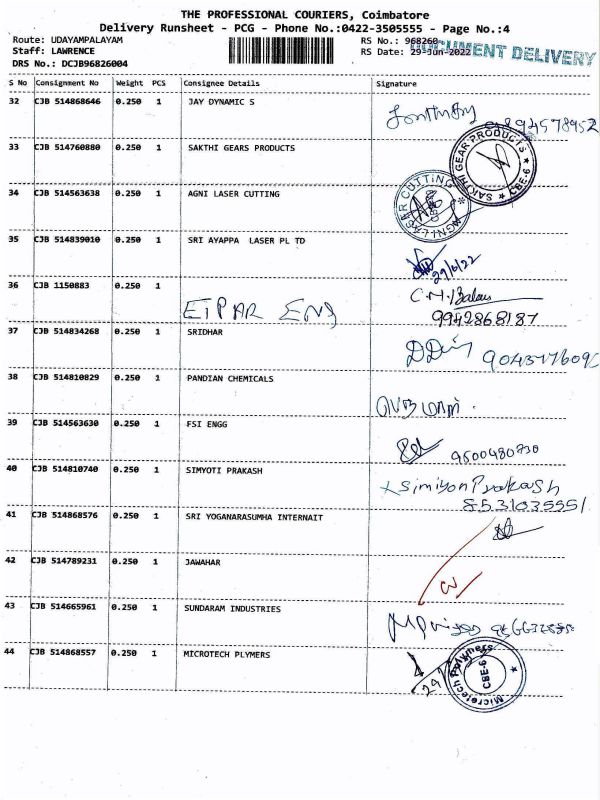 THE PROFESSIONAL COURIERS, Coimbatore
Delivery Runsheet - PCG - Phone No.:0422-3505555 - Page No.:4
Route: UDAYAMPALAYAM
RS No.: 968260
Staff: LAWRENCE
RS Date: 29-Jun-2022
DOCUMENT DELIVERY
DRS No.: DCJB96826004
S No Consignment No Weight PCS Consignee Details Signature
32 CJB 514868646 0.250 1 JAY DYNAMIC S
33 CJB 514760880 0.250 1 SAKTHI GEARS PRODUCTS
SAKTHI GEAR PRODUCTS CBE-6
34 CJB 514563638 0.250 1 AGNI LASER CUTTING
AGNI LASER CUTTING
35 CJB 514839010 0.250 1 SRI AYAPPA LASER PL TD
29/6/22
36 CJB 1150883 0.250 1 EIPAR ENG
9942868187
37 CJB 514834268 0.250 1 SRIDHAR
38 CJB 514810829 0.250 1 PANDIAN CHEMICALS
39 CJB 514563630 0.250 1 FSI ENGG
9500480730
40 CJB 514810740 0.250 1 SIMYOTI PRAKASH
Simiyon Prakash
8531035551
41 CJB 514868576 0.250 1 SRI YOGANARASUMHA INTERNAIT
42 CJB 514789231 0.250 1 JAWAHAR
43 CJB 514665961 0.250 1 SUNDARAM INDUSTRIES
44 CJB 514868557 0.250 1 MICROTECH PLYMERS
Microtech Polymers CBE-6